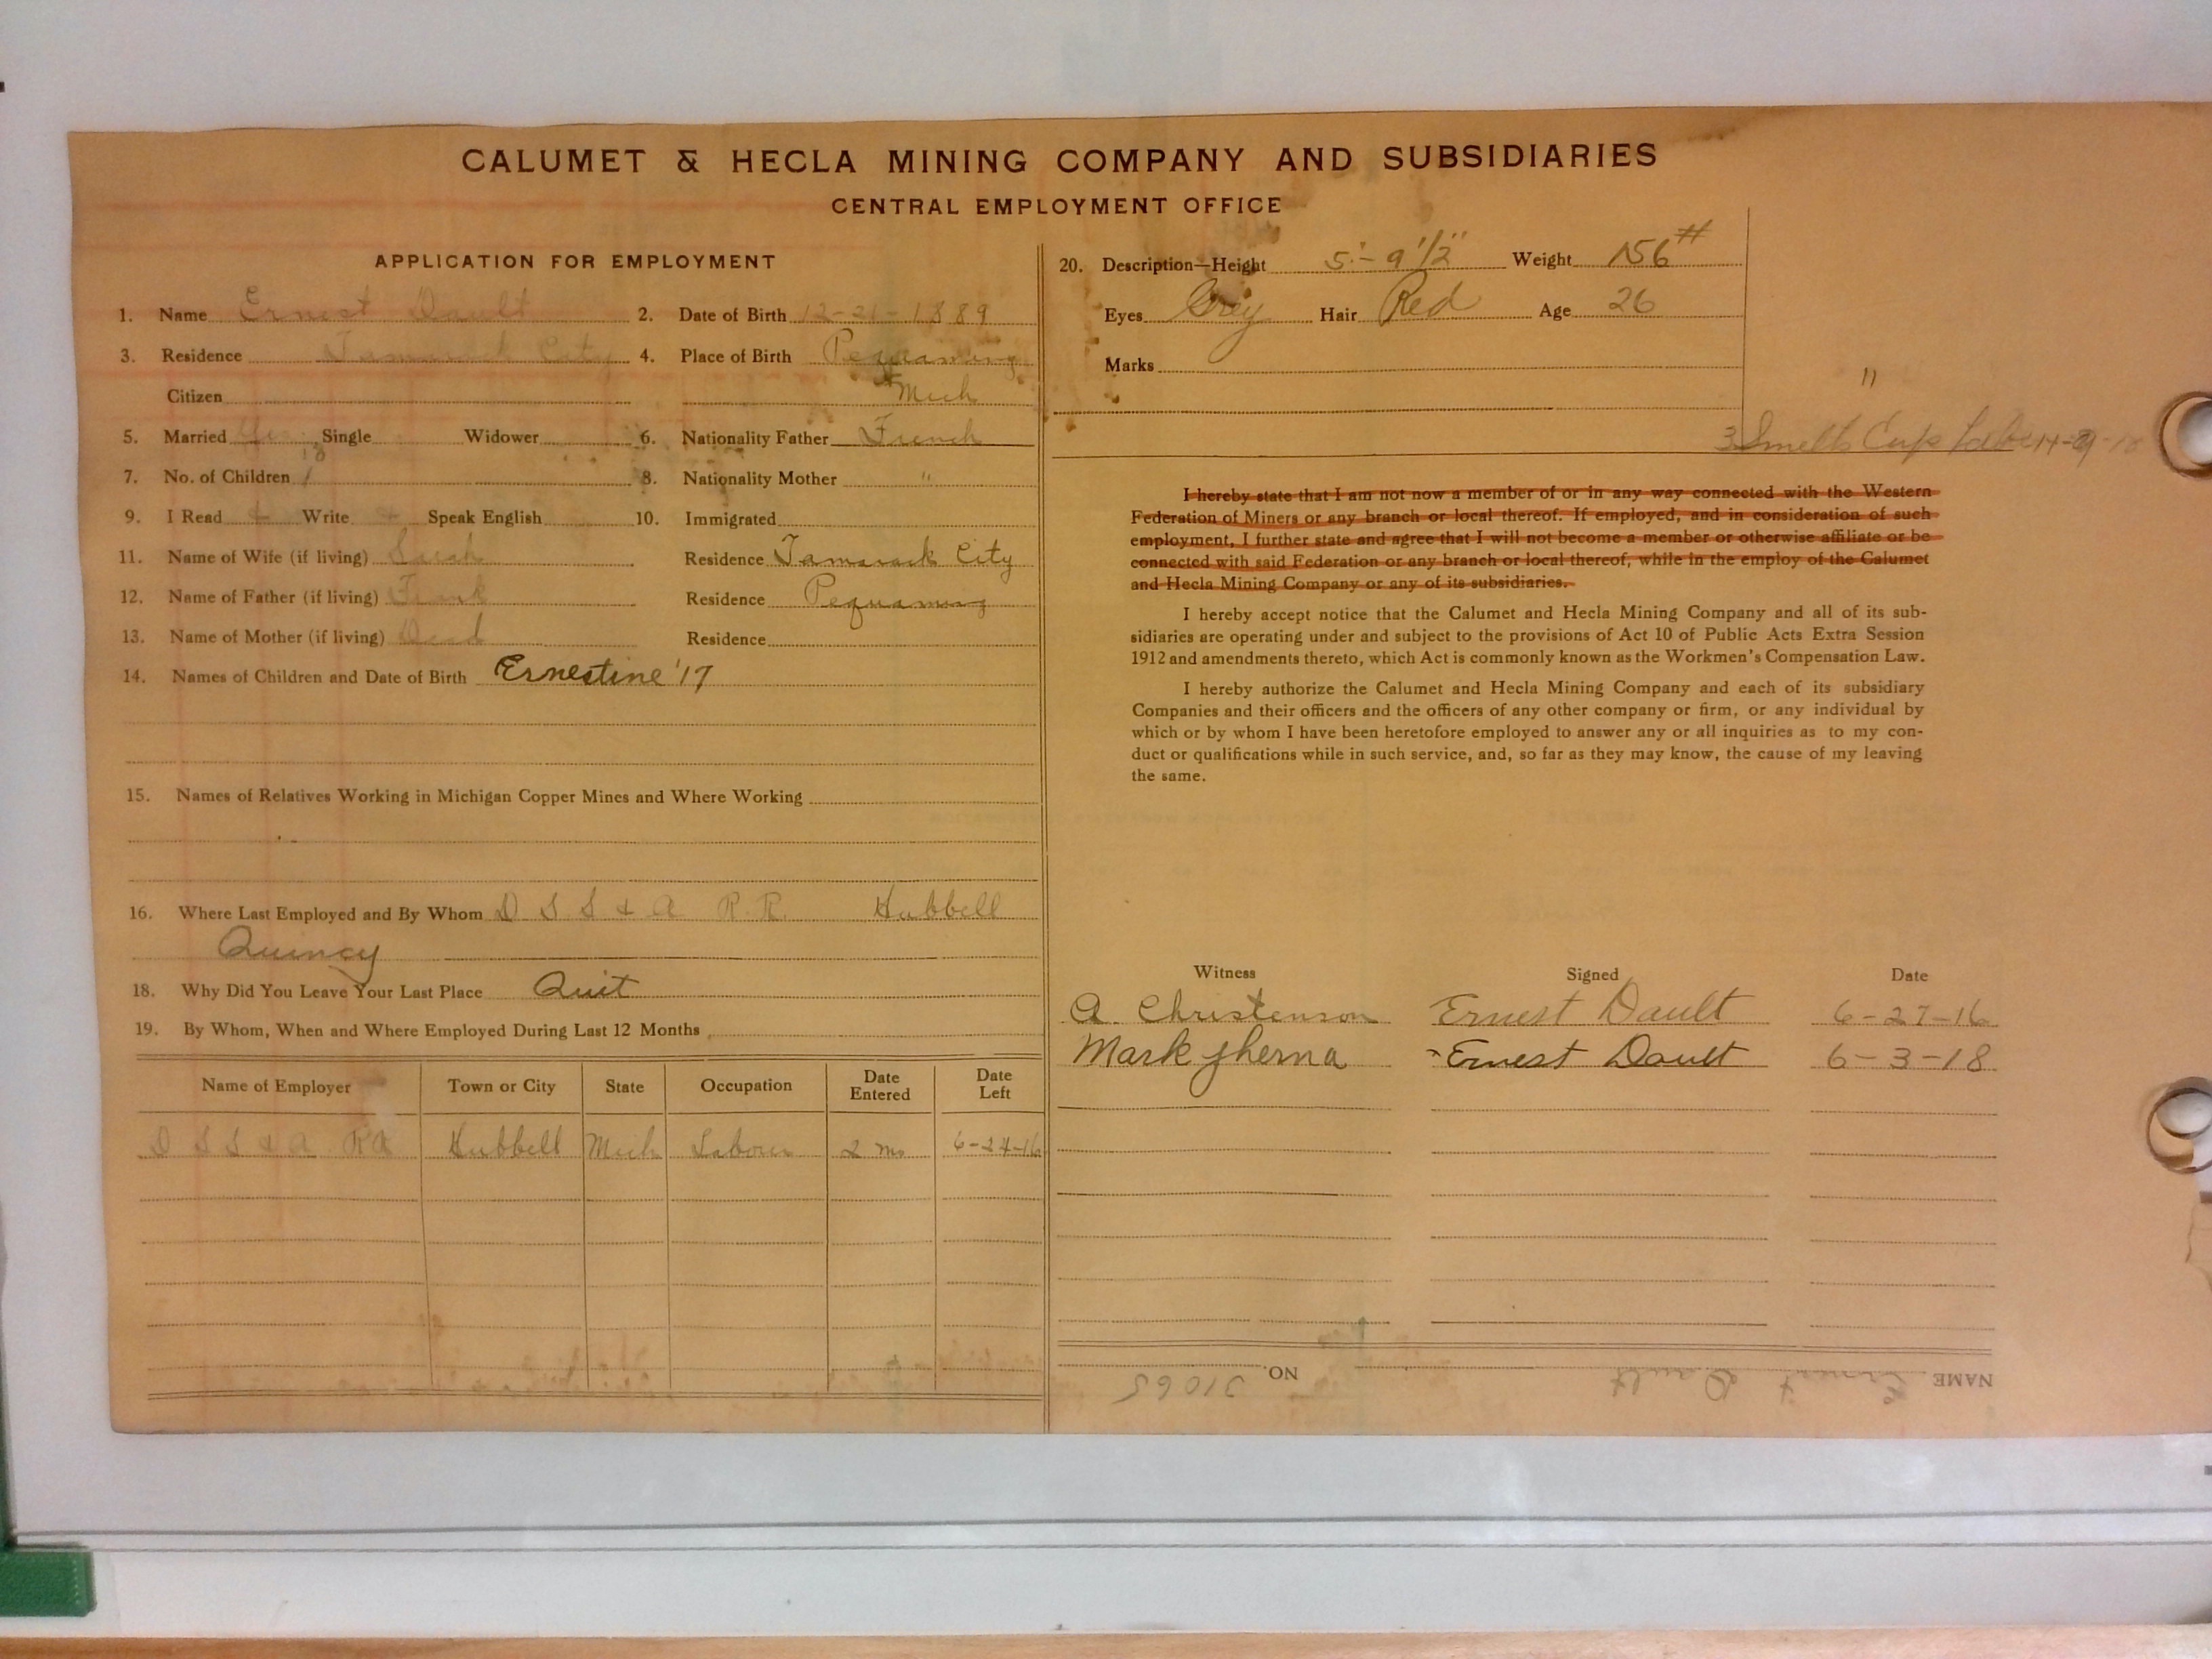 CALUMET & HECLA MINING COMPANY AND SUBSIDIARIES
CENTRAL EMPLOYMENT OFFICE
APPLICATION FOR EMPLOYMENT
1. Name Ernest Dault 2. Date of Birth 12-21-1889
3. Residence Tamarack City 4. Place of Birth Pequaming
Citizen Mich
5. Married Yes Single Widower 6. Nationality Father French
7. No. of Children 1 8. Nationality Mother "
9. I Read + Write + Speak English 10. Immigrated
11. Name of Wife (if living) Sarah Residence Tamarack City
12. Name of Father (if living) Frank Residence Pequaming
13. Name of Mother (if living) Dead Residence
14. Names of Children and Date of Birth Ernestine '17
15. Names of Relatives Working in Michigan Copper Mines and Where Working
16. Where Last Employed and By Whom D S S & A R.R. Hubbell
Quincy
18. Why Did You Leave Your Last Place Quit
19. By Whom, When and Where Employed During Last 12 Months
Name of Employer Town or City State Occupation Date Entered Date Left
D S S & A RR Hubbell Mich Labour 2 mo 6-24-16
20. Description—Height 5'-9 1/2" Weight 156#
Eyes Grey Hair Red Age 26
Marks
"
3 Smelts Cup
I hereby state that I am not now a member of or in any way connected with the Western
Federation of Miners or any branch or local thereof. If employed, and in consideration of such
employment, I further state and agree that I will not become a member or otherwise affiliate or be
connected with said Federation or any branch or local thereof, while in the employ of the Calumet
and Hecla Mining Company or any of its subsidiaries.
I hereby accept notice that the Calumet and Hecla Mining Company and all of its sub-
sidiaries are operating under and subject to the provisions of Act 10 of Public Acts Extra Session
1912 and amendments thereto, which Act is commonly known as the Workmen's Compensation Law.
I hereby authorize the Calumet and Hecla Mining Company and each of its subsidiary
Companies and their officers and the officers of any other company or firm, or any individual by
which or by whom I have been heretofore employed to answer any or all inquiries as to my con-
duct or qualifications while in such service, and, so far as they may know, the cause of my leaving
the same.
Witness Signed Date
A. Christenson Ernest Dault 6-27-16
Mark Jherna Ernest Dault 6-3-18
NAME Ernest Dault NO. 31065